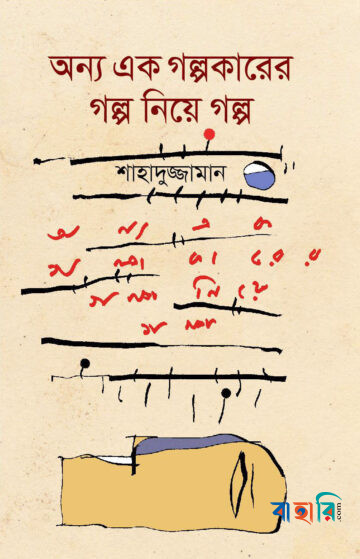 অন্য এক গল্পকারের
গল্প নিয়ে গল্প
শাহাদুজ্জামান
অ ন্য এ ক
গ ল্প কা রে র
গ ল্প নি য়ে
গ ল্প
বাহারি.com